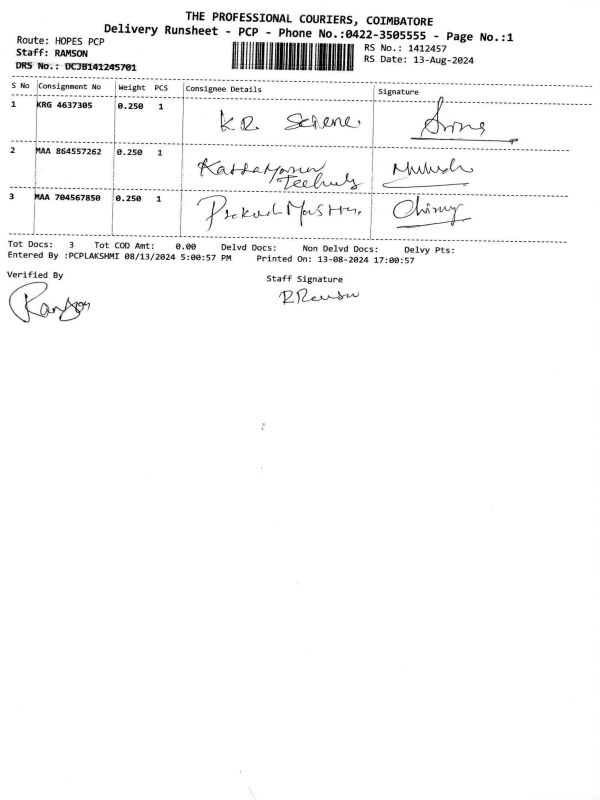 THE PROFESSIONAL COURIERS, COIMBATORE
Delivery Runsheet - PCP - Phone No.:0422-3505555 - Page No.:1
Route: HOPES PCP
Staff: RAMSON
DRS No.: DCJB141245701
RS No.: 1412457
RS Date: 13-Aug-2024
S No Consignment No Weight PCS Consignee Details Signature
1 KRG 4637305 0.250 1 K.R.
2 MAA 864557262 0.250 1
3 MAA 704567850 0.250 1
Tot Docs: 3 Tot COD Amt: 0.00 Delvd Docs: Non Delvd Docs: Delvy Pts:
Entered By :PCPLAKSHMI 08/13/2024 5:00:57 PM Printed On: 13-08-2024 17:00:57
Verified By Staff Signature
Ramson